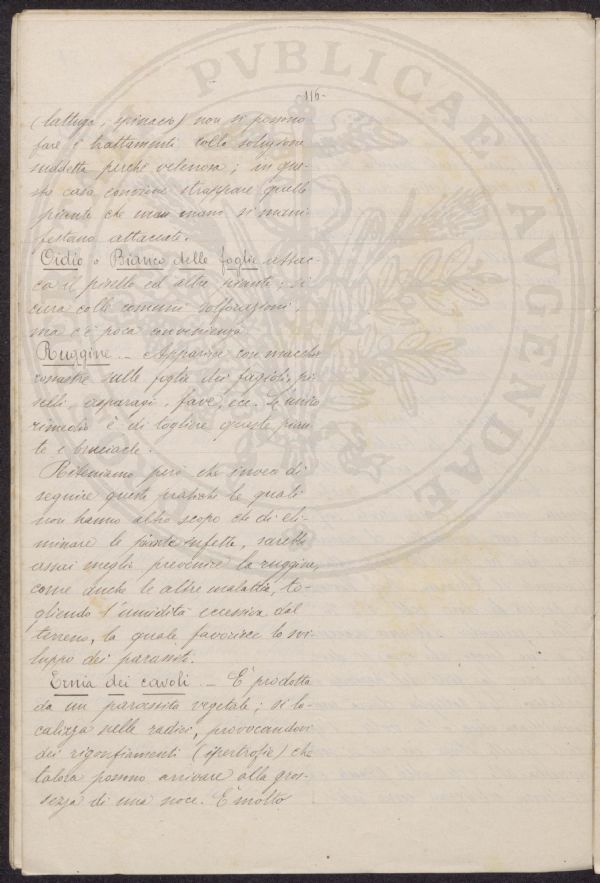 -116-
(lattuga, spinacio) non si possono
fare i trattamenti colla soluzione
suddetta perchè velenosa; in que-
sto caso conviene strappare quelle
piante che man mano si mani-
festano attaccate.
Oidio o Bianco delle foglie attac-
ca il pisello ed altre piante; si
cura colle comuni solforazioni,
ma c'è poca convenienza.
Ruggine. - Apparisce con macchie
rossastre sulle foglie dei fagioli, pi-
selli, asparagi, fave, ecc. L'unico
rimedio è di togliere queste pian-
te e bruciarle.
Riteniamo però che invece di
seguire queste pratiche le quali
non hanno altro scopo che di eli-
minare le piante infette, sarebbe
assai meglio prevenire la ruggine,
come anche le altre malattie, to-
gliendo l'umidità eccessiva dal
terreno, la quale favorisce lo svi-
luppo dei parassiti.
Ernia dei cavoli - È prodotta
da un parassita vegetale; si lo-
calizza nelle radici, provocandovi
dei rigonfiamenti (ipertrofie) che
talora possono arrivare alla gros-
sezza di una noce. È molto
PVBLICAE AVGENDAE